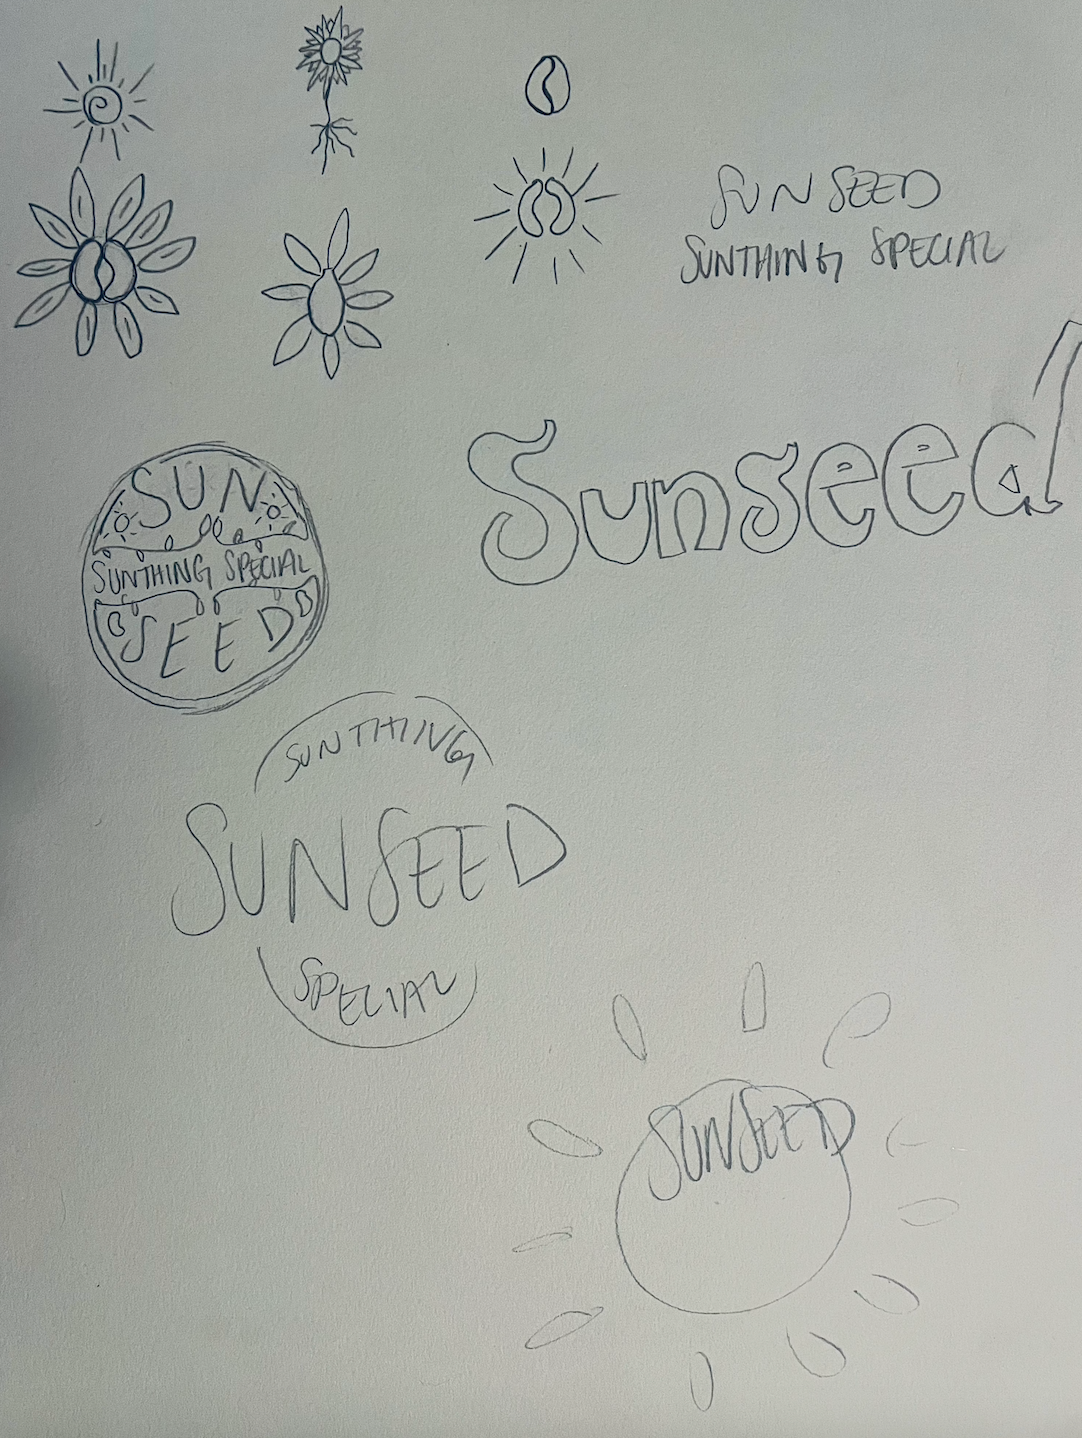 SUN SEED
SUNTHING SPECIAL
Sunseed
SUN
SUNTHING SPECIAL
SEED
SUNTHING
SUNSEED
SPECIAL
SUNSEED